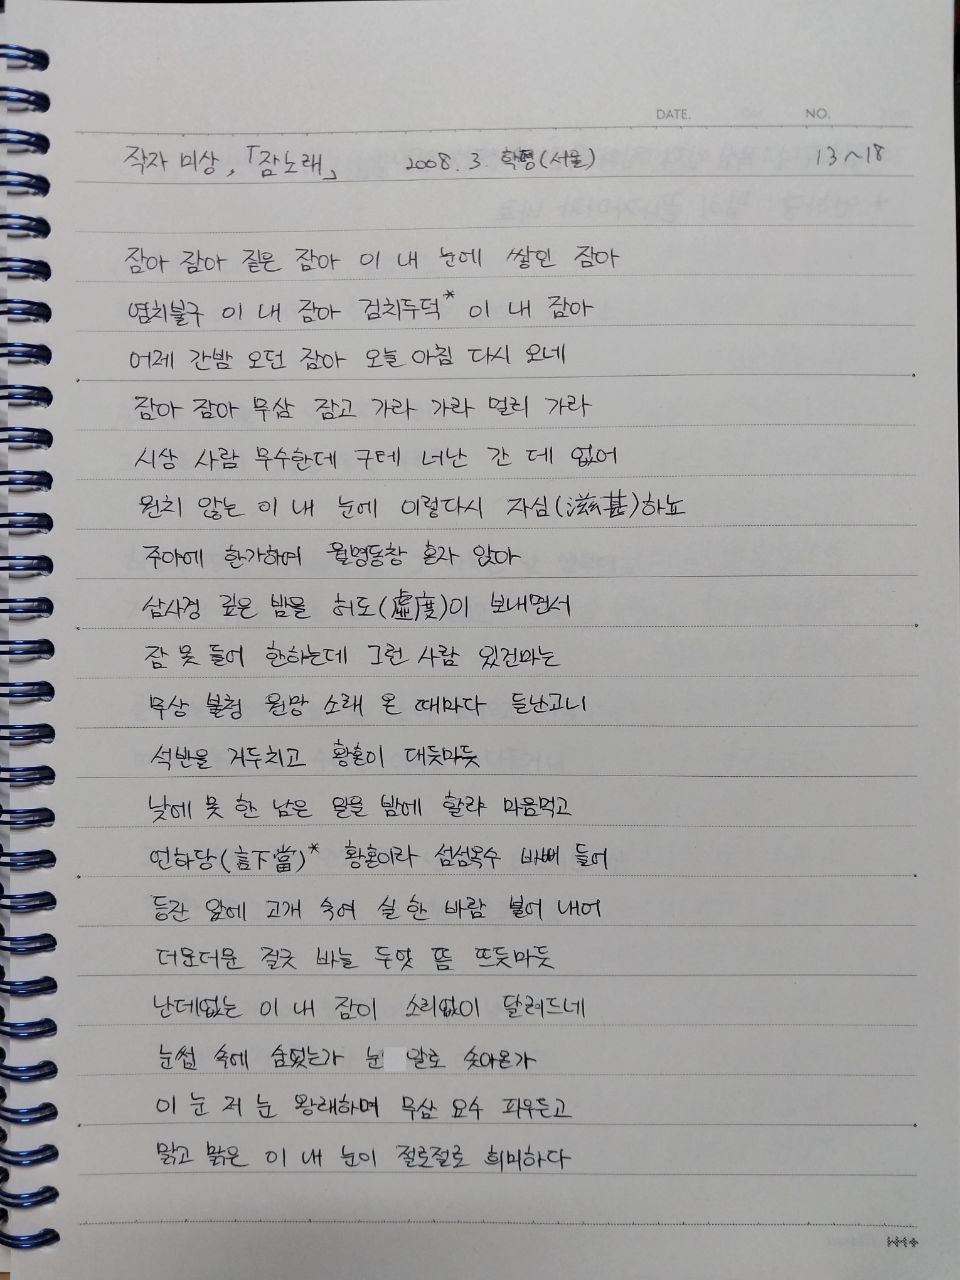 DATE. NO.
작자 미상, 「잠노래」 2008. 3. 학평(서울) 13~18
잠아 잠아 짙은 잠아 이 내 눈에 쌓인 잠아
염치불구 이 내 잠아 검치두덕* 이 내 잠아
어제 간밤 오던 잠아 오늘 아침 다시 오네
잠아 잠아 무삼 잠고 가라 가라 멀리 가라
시상 사람 무수한데 구테 너난 간 데 없어
원치 않는 이 내 눈에 이렇다시 자심(滋甚)하뇨
주야에 한가하여 월명동창 혼자 앉아
삼사경 깊은 밤을 허도(虛度)이 보내면서
잠 못 들어 한하는데 그런 사람 있건마는
무상 불청 원망 소래 온 때마다 듣난고니
석반을 거두치고 황혼이 대듯마듯
낮에 못 한 남은 일을 밤에 할랴 마음먹고
언하당(言下當)* 황혼이라 섬섬옥수 바삐 들어
등잔 앞에 고개 숙여 실 한 바람 불어 내어
더문더문 질긋 바늘 두엇 뜸 뜨듯마듯
난데없는 이 내 잠이 소리없이 달려드네
눈썹 속에 숨었는가 눈 알로 솟아온가
이 눈 저 눈 왕래하며 무삼 요수 피우든고
맑고 맑은 이 내 눈이 절로절로 희미하다